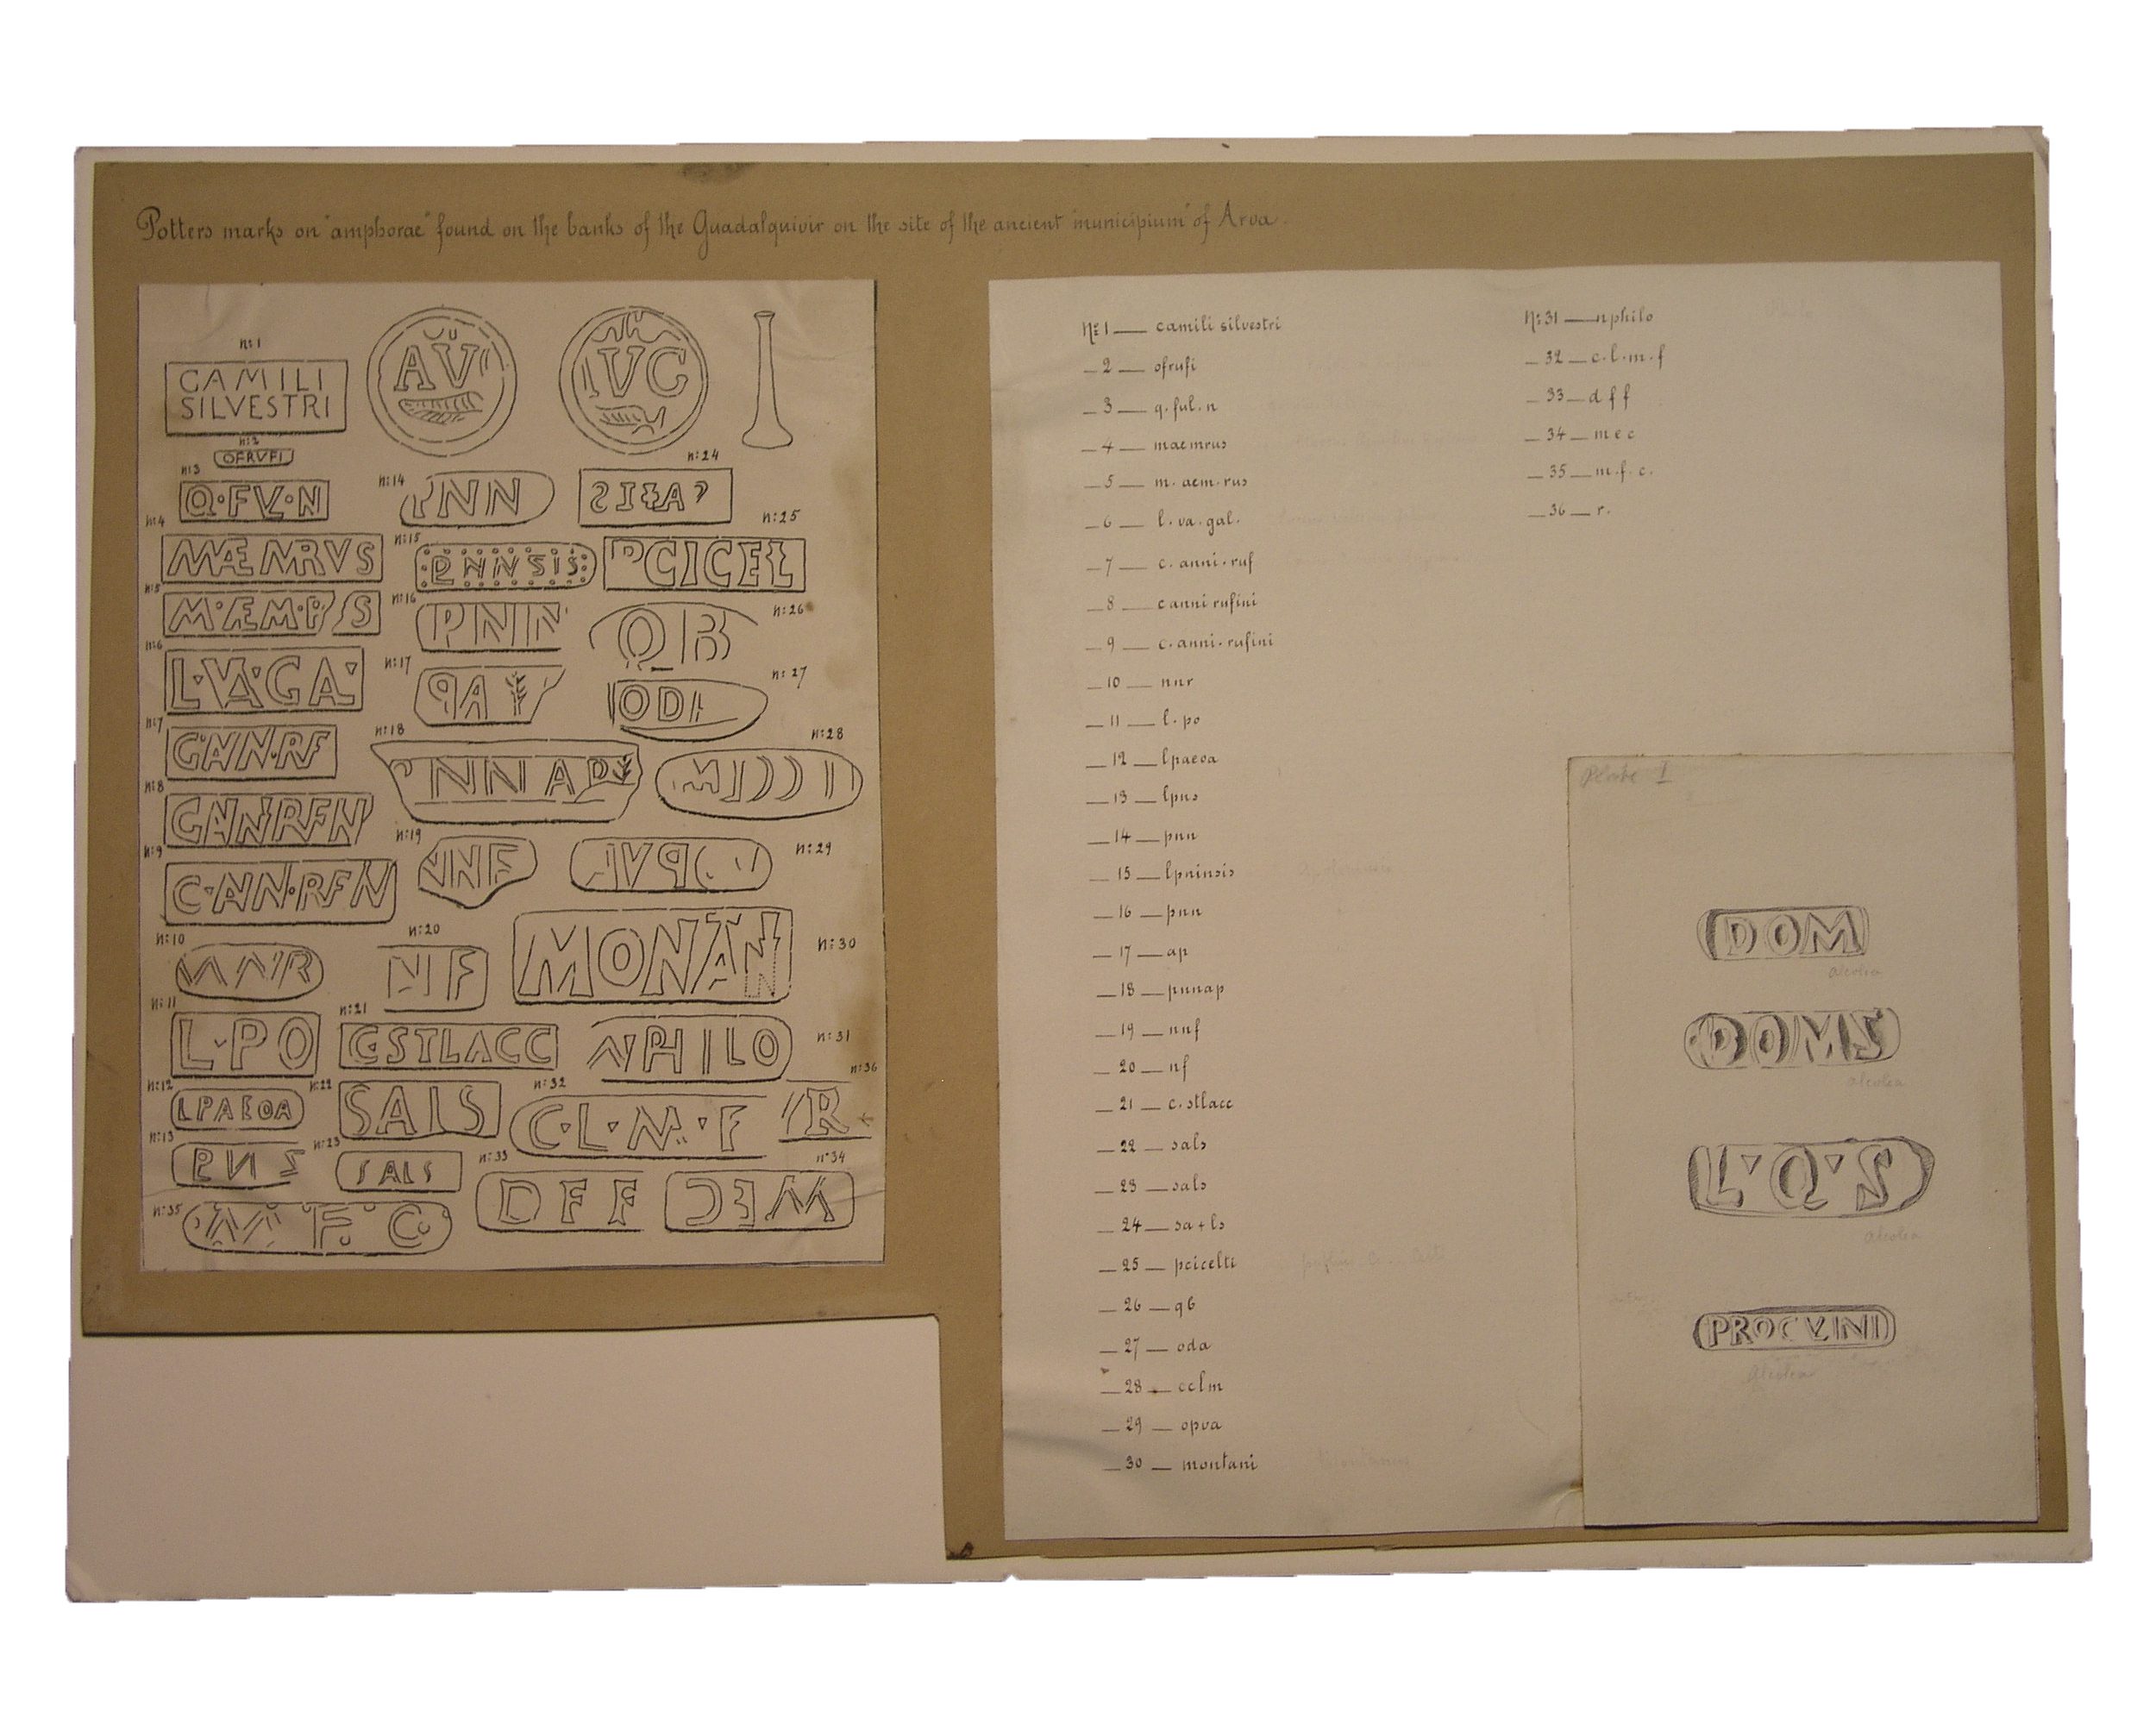 Potters marks on "amphorae" found on the banks of the Guadalquivir on the site of the ancient "municipium" of Arva.
n:1
CAMILI
SILVESTRI
AV
IVC
n:2
OFRVFI
n:3
Q·FVL·N
n:4
MAEMRVS
n:5
M·AEM·R S
n:6
L·VA·GA·
n:7
C·ANN·RF
n:8
CANNRFN
n:9
C·ANN·RFN
n:10
NNR
n:11
L·PO
n:12
LPAEOA
n:13
PNS
n:14
PNN
n:15
PNNSIS
n:16
PNN
n:17
PA
n:18
PNNAP
n:19
NNF
n:20
NF
n:21
C·STLACC
n:22
SALS
n:23
SALS
n:24
n:25
PCICEL
n:26
QB
n:27
ODA
n:28
n:29
n:30
MONAN
n:31
NPHILO
n:32
C·L·M·F
n:33
DFF
n:34
MEC
n:35
M F C
n:36
R
Nº 1 — camili silvestri
— 2 — ofrufi
— 3 — q.ful.n
— 4 — maemrus
— 5 — m.aem.rus
— 6 — l.va.gal.
— 7 — c.anni.ruf
— 8 — canni rufini
— 9 — c.anni.rufini
— 10 — nnr
— 11 — l.po
— 12 — lpaeoa
— 13 — lpns
— 14 — pnn
— 15 — lpninsis
— 16 — pnn
— 17 — ap
— 18 — pnnap
— 19 — nnf
— 20 — nf
— 21 — c.stlacc
— 22 — sals
— 23 — sals
— 24 — sa+ls
— 25 — pcicelti
— 26 — qb
— 27 — oda
— 28 — cclm
— 29 — opva
— 30 — montani
Nº 31 — nphilo
— 32 — c.l.m.f
— 33 — d f f
— 34 — m e c
— 35 — m.f.c.
— 36 — r.
Plate I
DOM
alcolea
DOMS
alcolea
L·Q·S
alcolea
PROCVLINI
alcolea